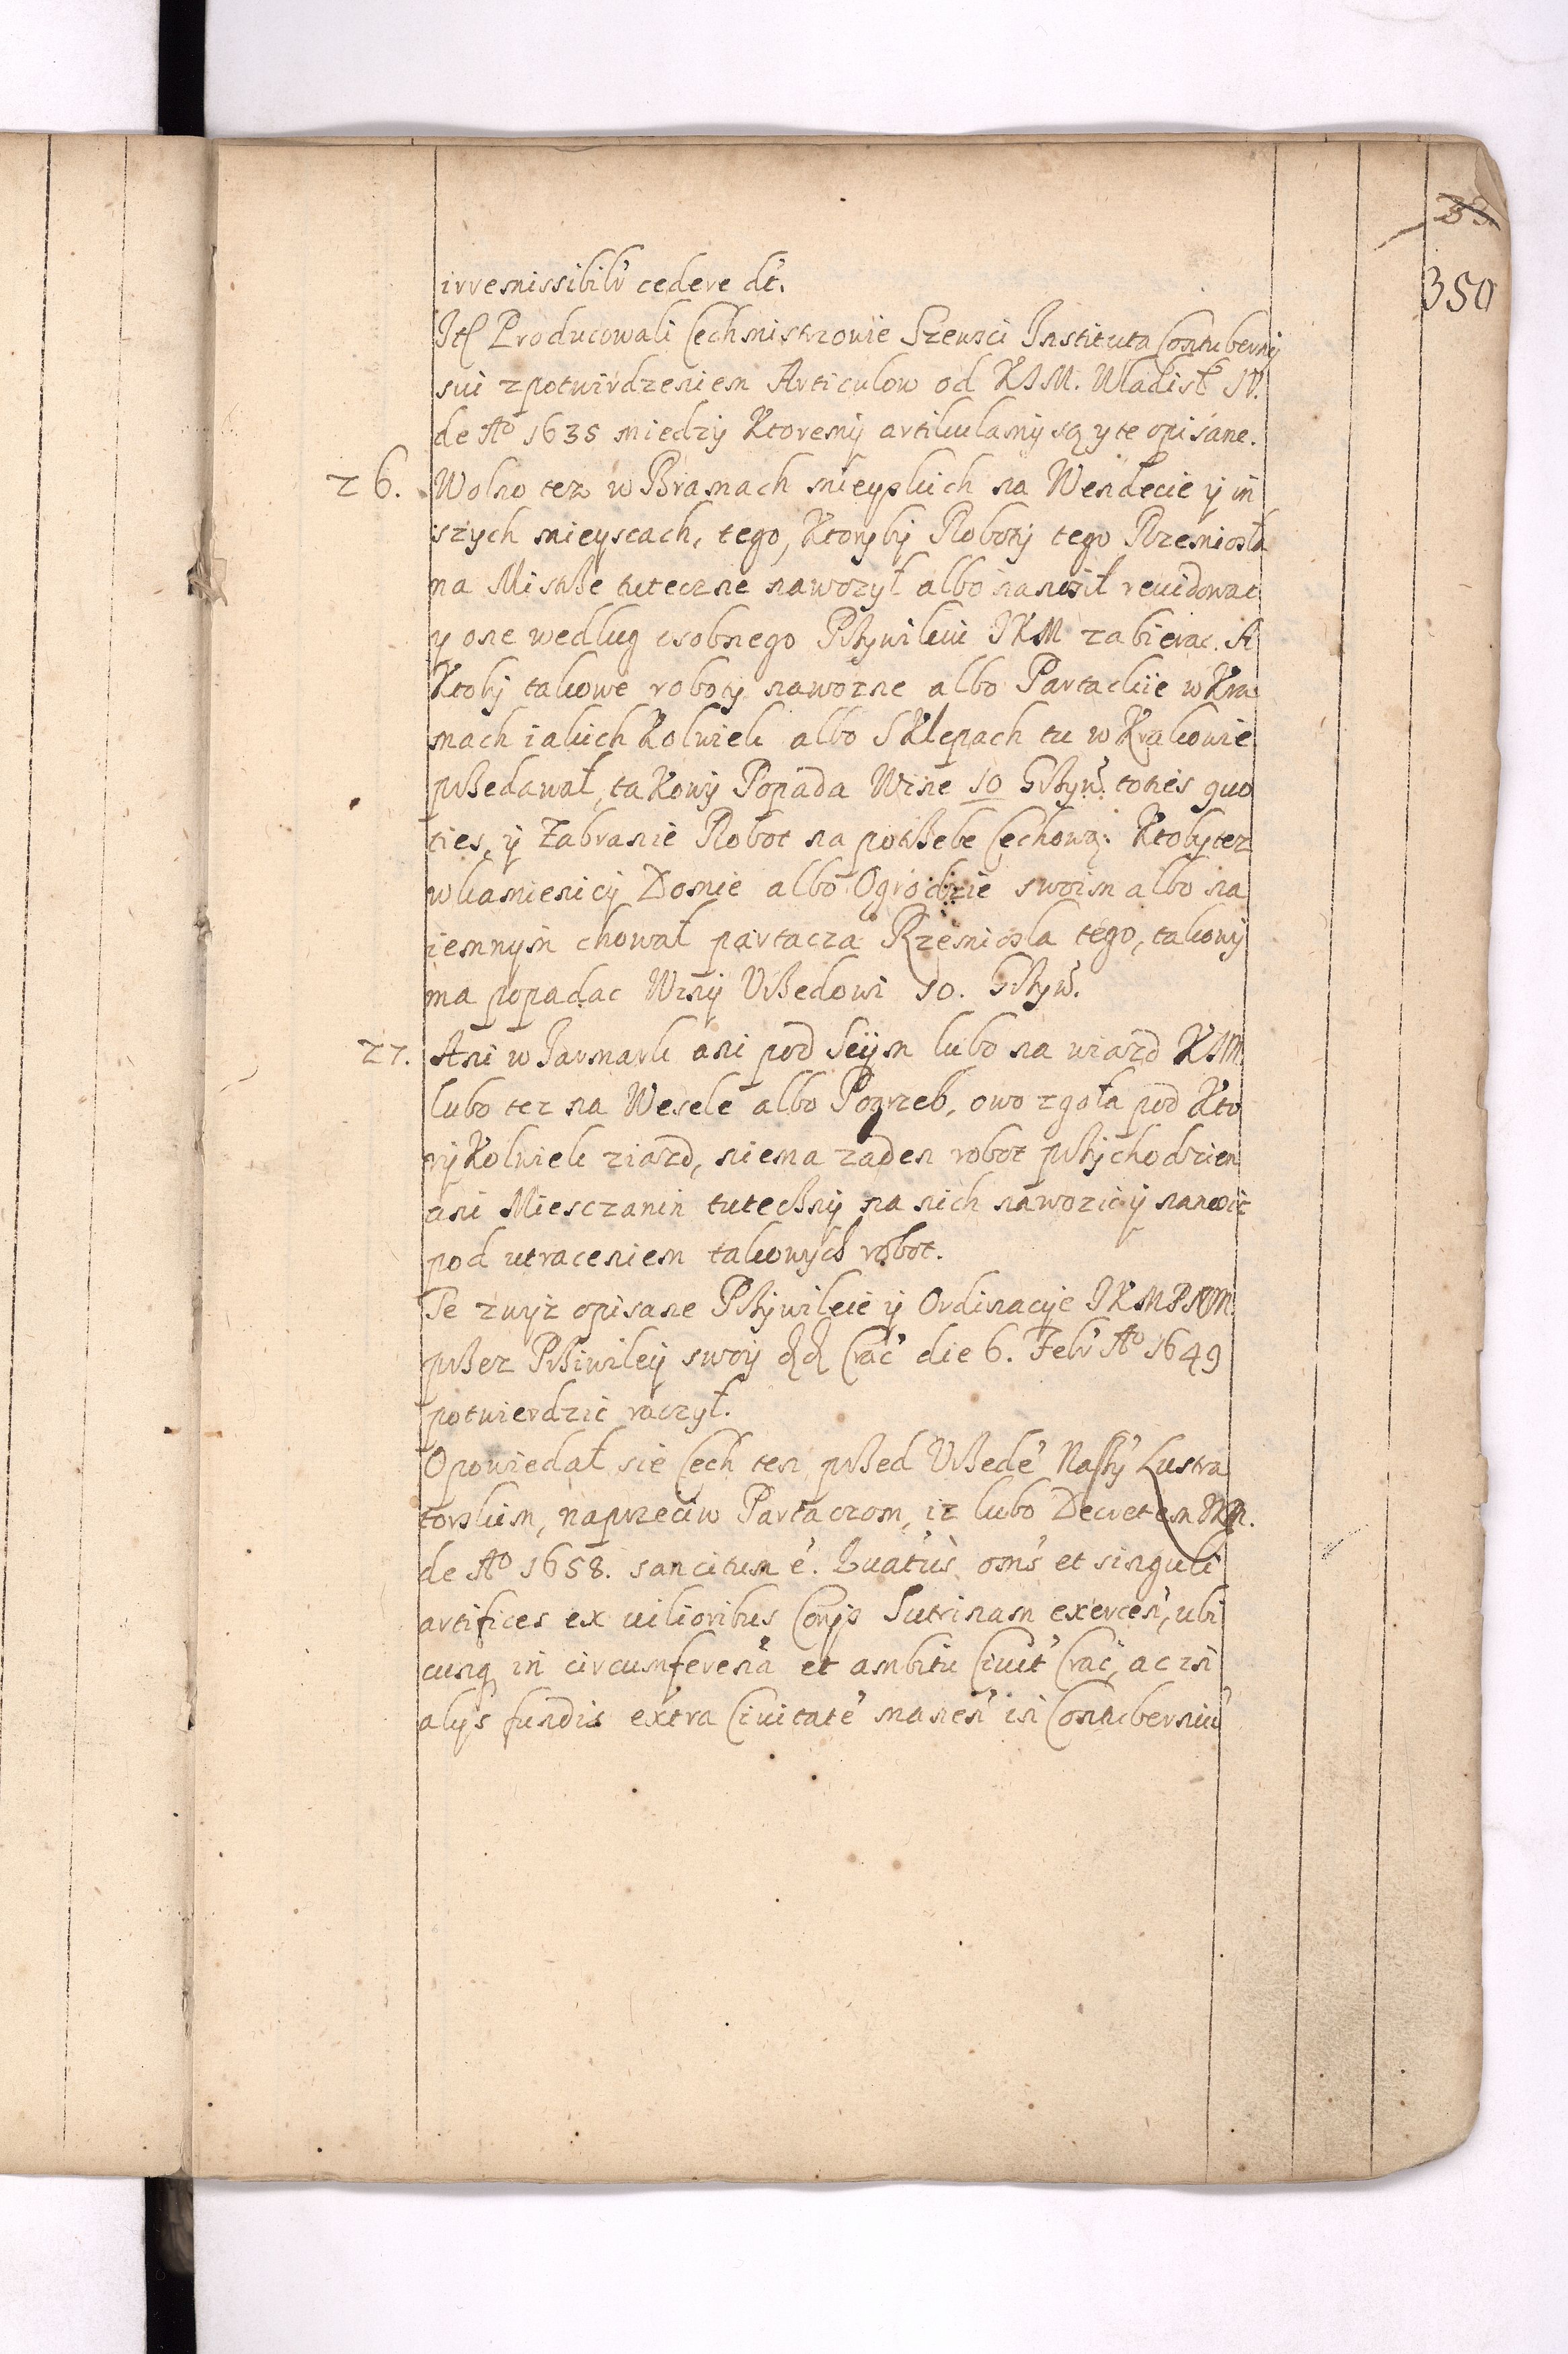 33
350
irremissibilr̃ cedere dt̃.
Itẽ Producowali Cechmistrzowie Szewsci Instituta Contubernij
sui z potwirdzeniem Articulow od KIM. Wladisł IV.
de Aº 1635 miedzy Ktoremy artikulamy są y te opisane.
26. Wolno tez w Bramach mieyskich na Wendecie y in
szych mieyscach, tego, Ktoryby Roboty tego Rzemiosła
na Mistrze tuteczne nawozył albo nanosił reuidowac
y one wedlug osobnego Przywileiu IKM zabierac. A
Ktoby takowe roboty nawozne albo Partackie w Kra
mach iakich Kolwiek albo SKlepach tu w Krakowie
przedawał, taKowy Popada Wine 10 Grzyw̃. toties quo
ties, y Zabranie Robot na potrzebe Cechową. Ktoby tez
w kamienicy Domie albo Ogrodzie swoim albo na
iemnym chował partacza Rzemiosla tego, takowy
ma popadac Winy Vrzedowi 10. Grzyw̃.
27. Ani w Jarmark ani pod Seym lubo na wiazd KIM
lubo tez na Wesele albo Pogrzeb, owo zgoła pod Kto
ryKolwiek ziazd, niema zaden robot przychodzien
ani Miesczanin tuteczny na nich nawozic y nanosic
pod utraceniem takowych robot.
Te zwyz opisane Przywileie y Ordinacyie IKMPNM
przez Prziwiley swoy dd Crac̃ die 6. Febr̃ Aº 1649
potwierdzic raczył.
Opowiedał sie Cech ten przed Vrzedẽ Naszỹ Lustra
torskim, naprzeciw Partaczom, iz lubo Decretem IKM.
de Aº 1658. sancitum ẽ. Quatũs oms̃ et singuli
artifices ex uilioribus Corijs Sutrinam exercen̄, ubi
cunq in circumferen̄a et ambitu Ciuit̃ Crac̃, ac in
alijs fundis extra Ciuitatẽ manen̄ in Contuberniũ